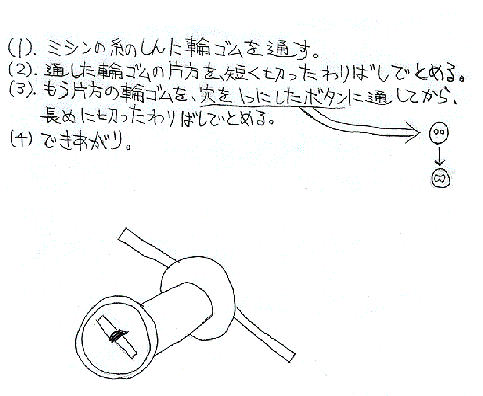 (1). ミシンの糸のしんに輪ゴムを通す。
(2). 通した輪ゴムの片方を、短く切ったわりばしでとめる。
(3). もう片方の輪ゴムを、穴を1つにしたボタンに通してから、
長めに切ったわりばしでとめる。
(4) できあがり。